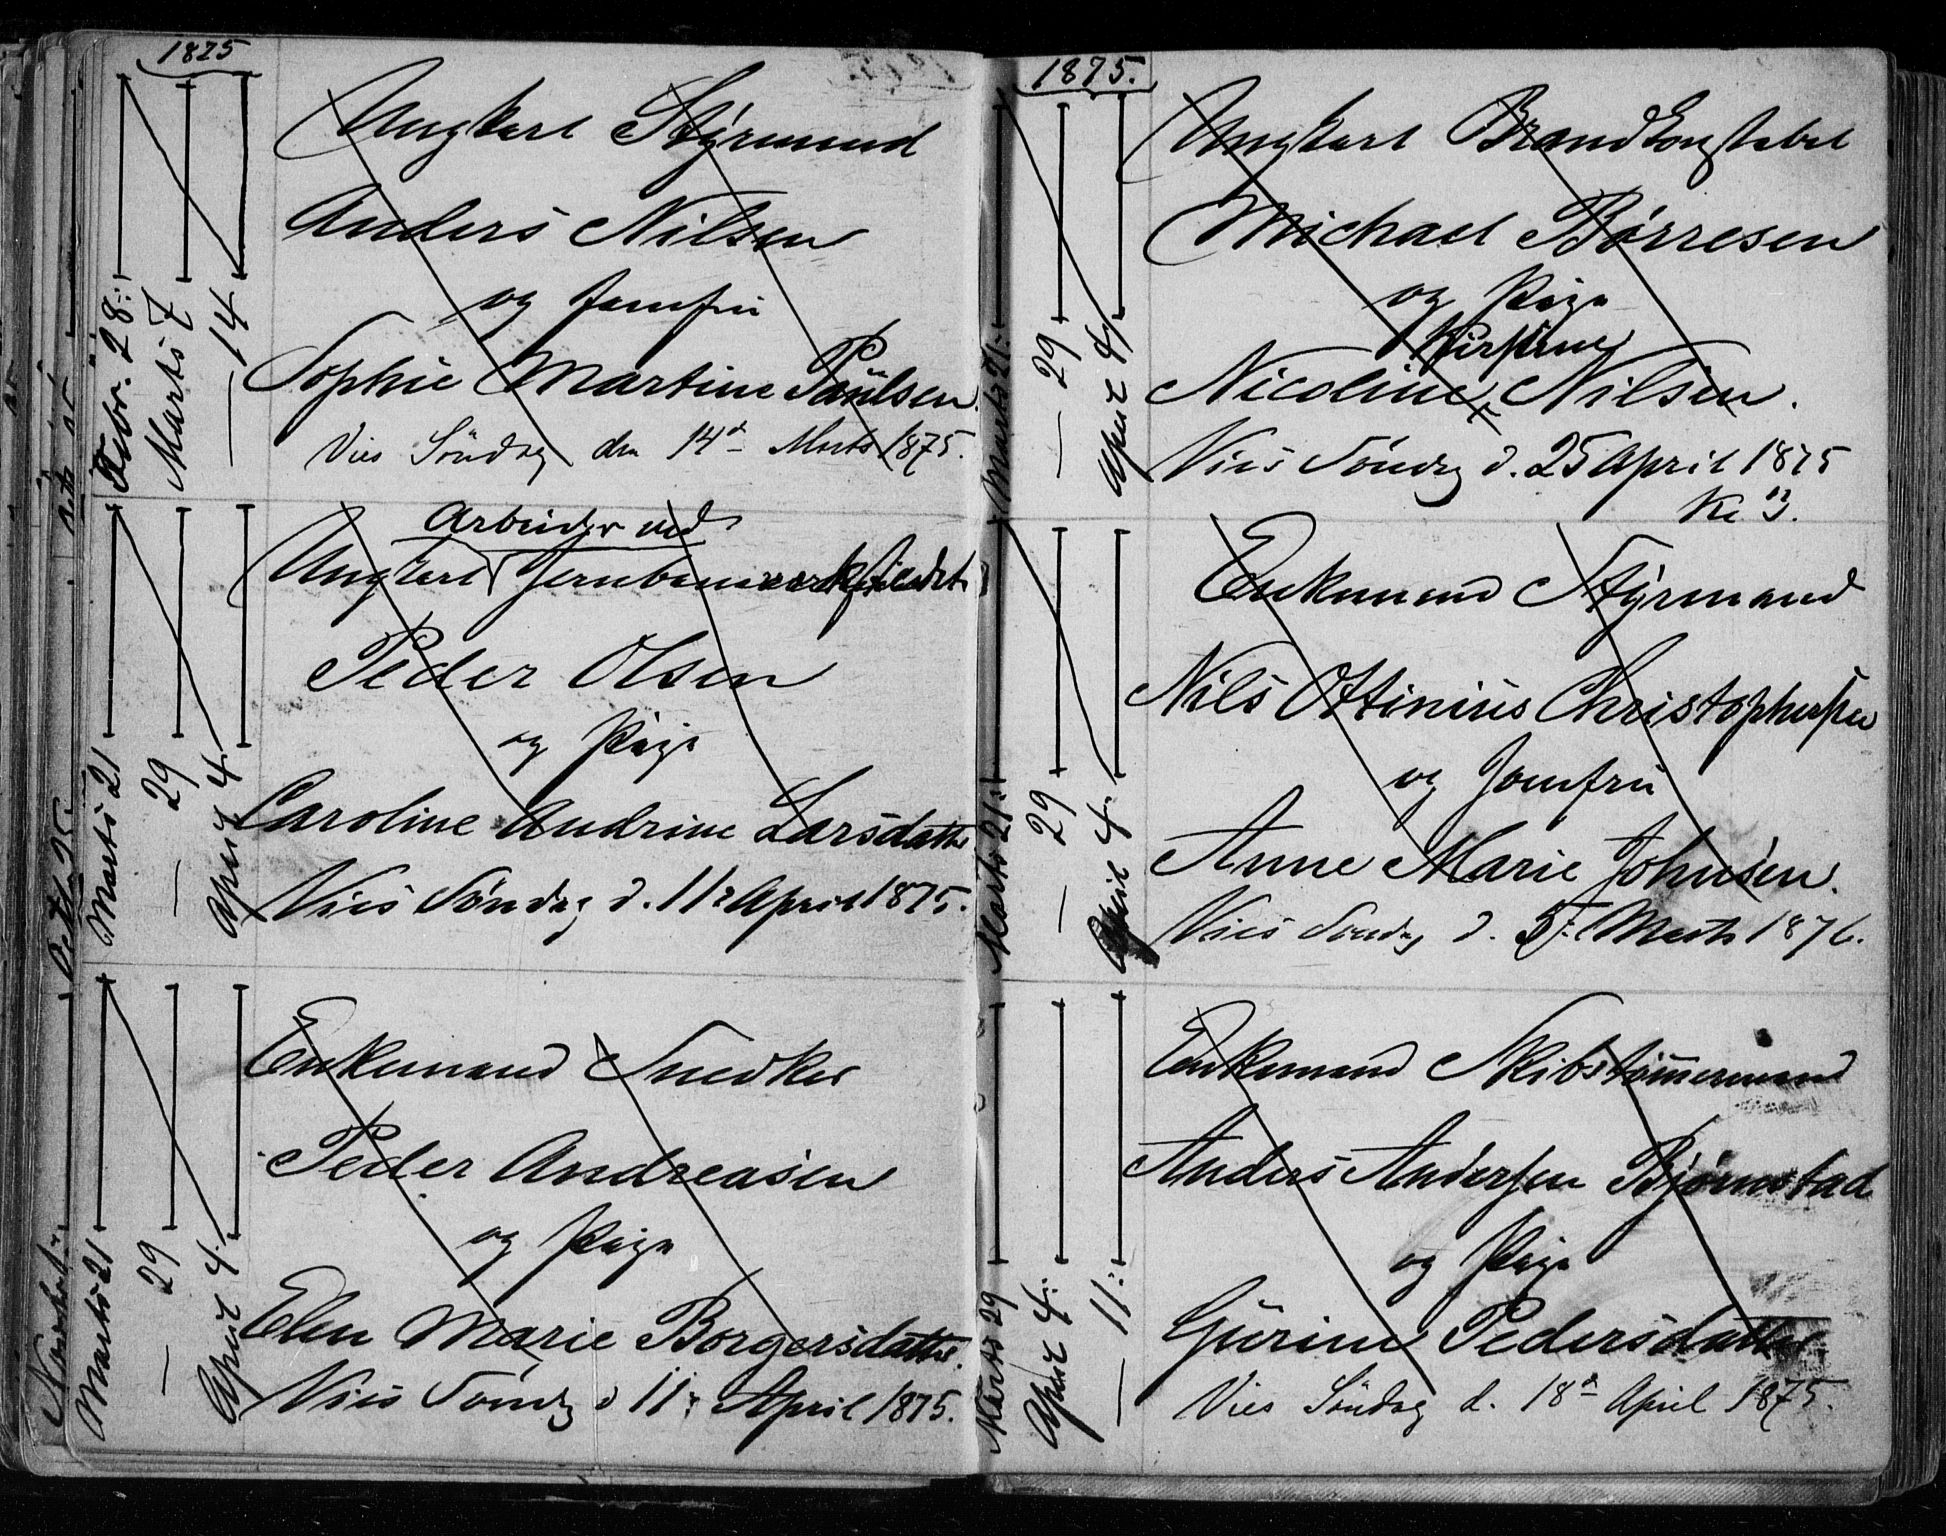 1875
Febr. 28:
Marts 7
— 14
Ungkarl Styrmand
Anders Nilsen
og Jomfru
Sophie Martine Paulsen.
Vies Søndag den 14d Marts 1875.
Marts 21
— 29
April 4.
Arbeider ved
Ungkarl Jernbane
Peder Olsen
og Pige
Caroline Andrine Larsdatter
Vies Søndag d. 11: April 1875.
Marts 21
— 29
April 4.
Enkemand Snedker
Peder Andreasen
og Pige
Elen Marie Borgersdatter.
Vies Søndag d 11: April 1875.
1875.
Marts 21:
— 29
April 4
Ungkarl Brandkonstabel
Michael Børresen
og Pige
Kirstine
Nicoline Nilsen.
Vies Søndag d. 25 April 1875
Kl 3.
Marts 21:
— 29
April 4:
Enkemand Styrmand
Nils Ottinius Christophersen
og Jomfru
Anne Marie Johnsen.
Vies Søndag d. 5: Marts 1876.
Marts 29
April 4:
— 11:
Enkemand Skibstømmermand
Anders Andersen Bjørnestad
og Pige
Gurine Pedersdatter
Vies Søndag d. 18d April 1875.